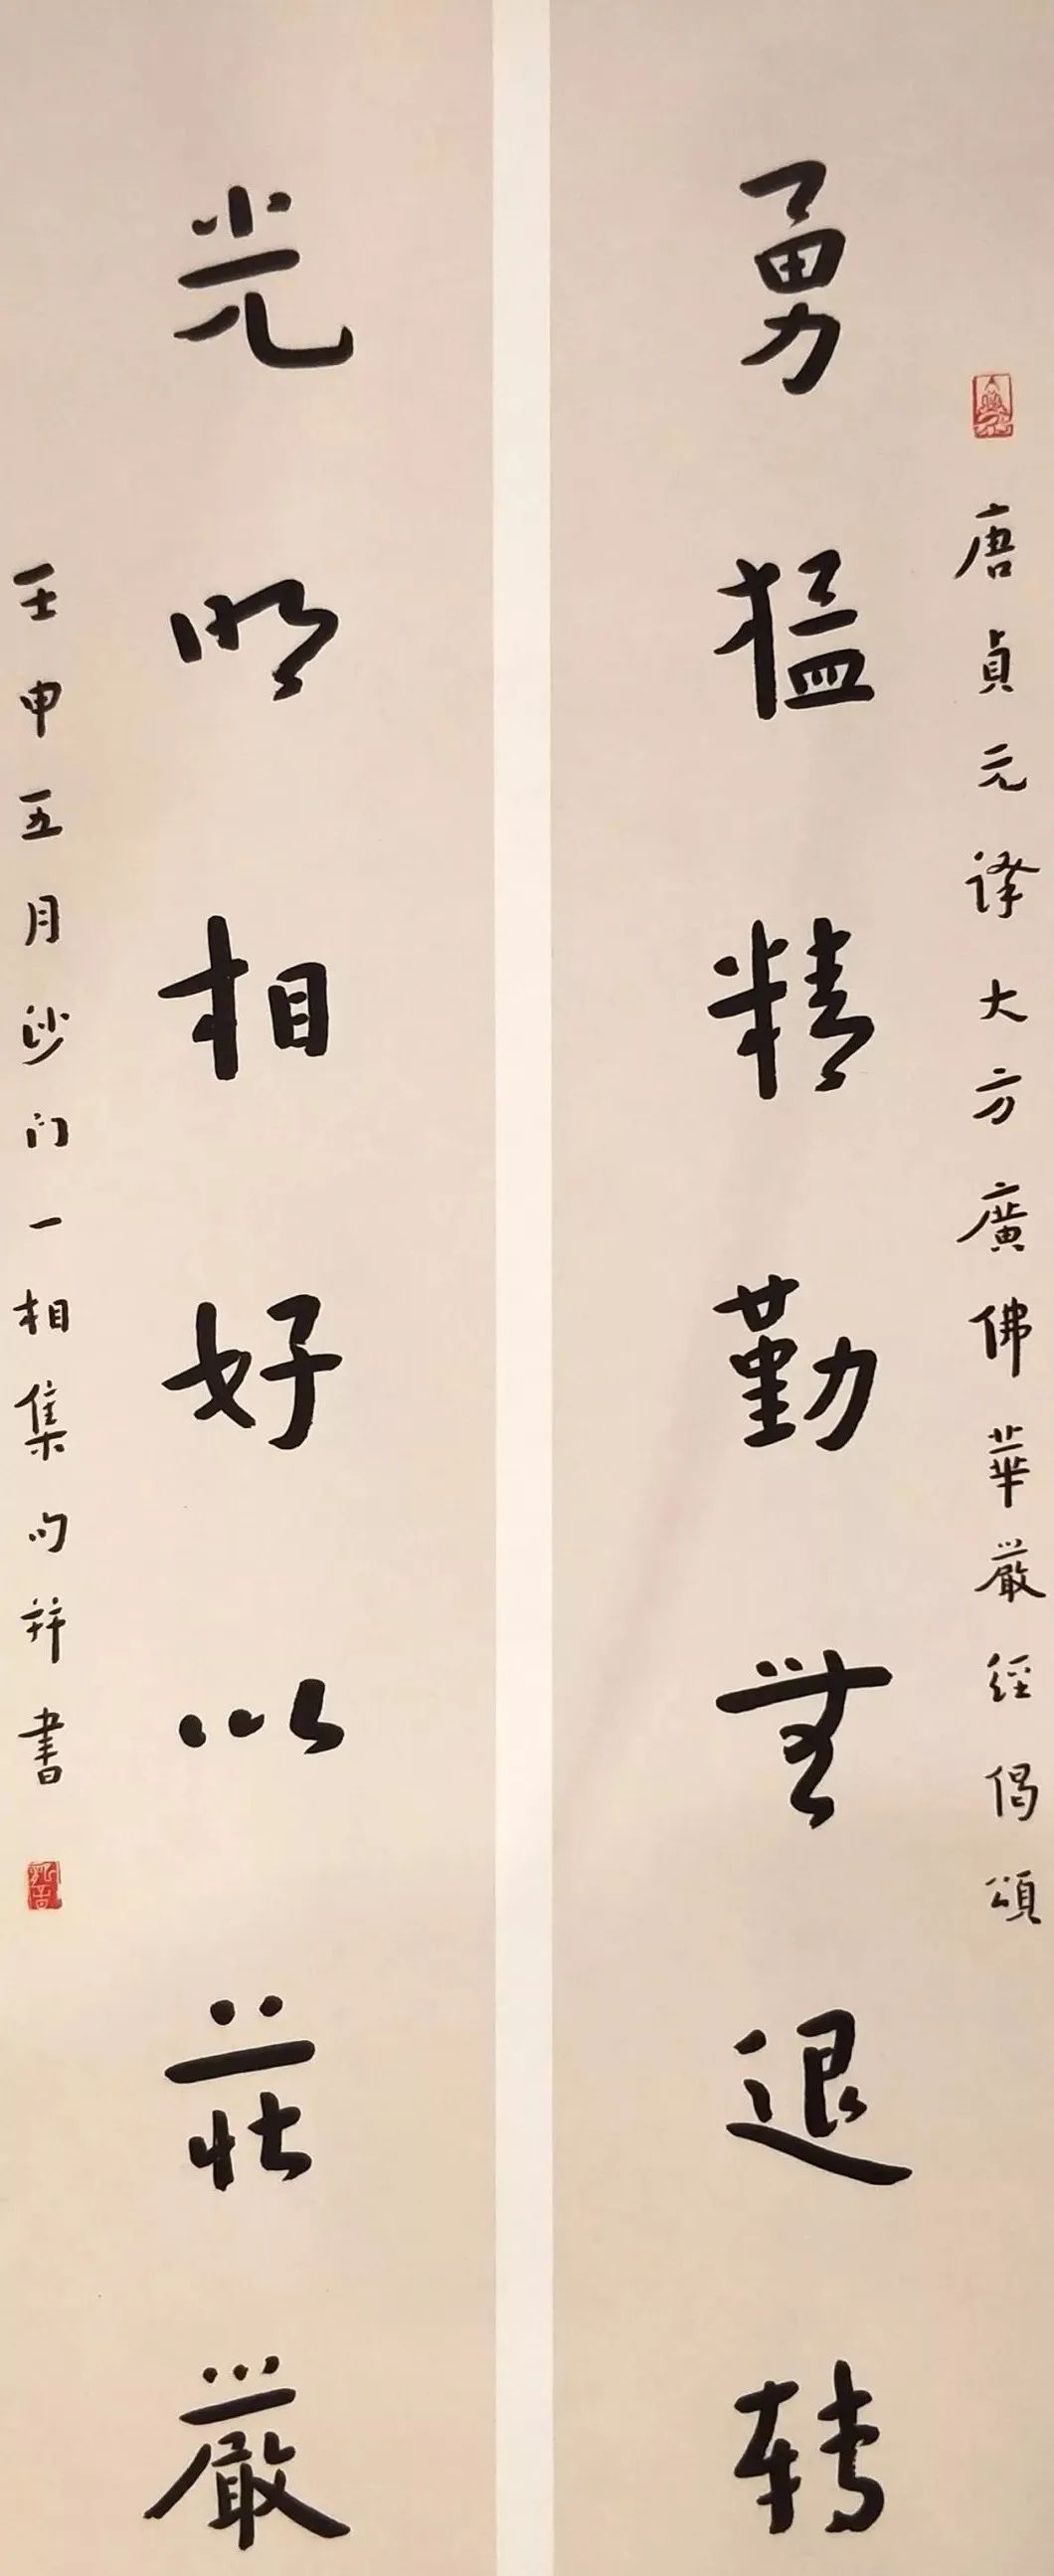 唐貞元译大方廣佛華嚴經偈頌
勇猛精勤無退轉
光明相好以莊嚴
壬申五月沙门一相集句并書